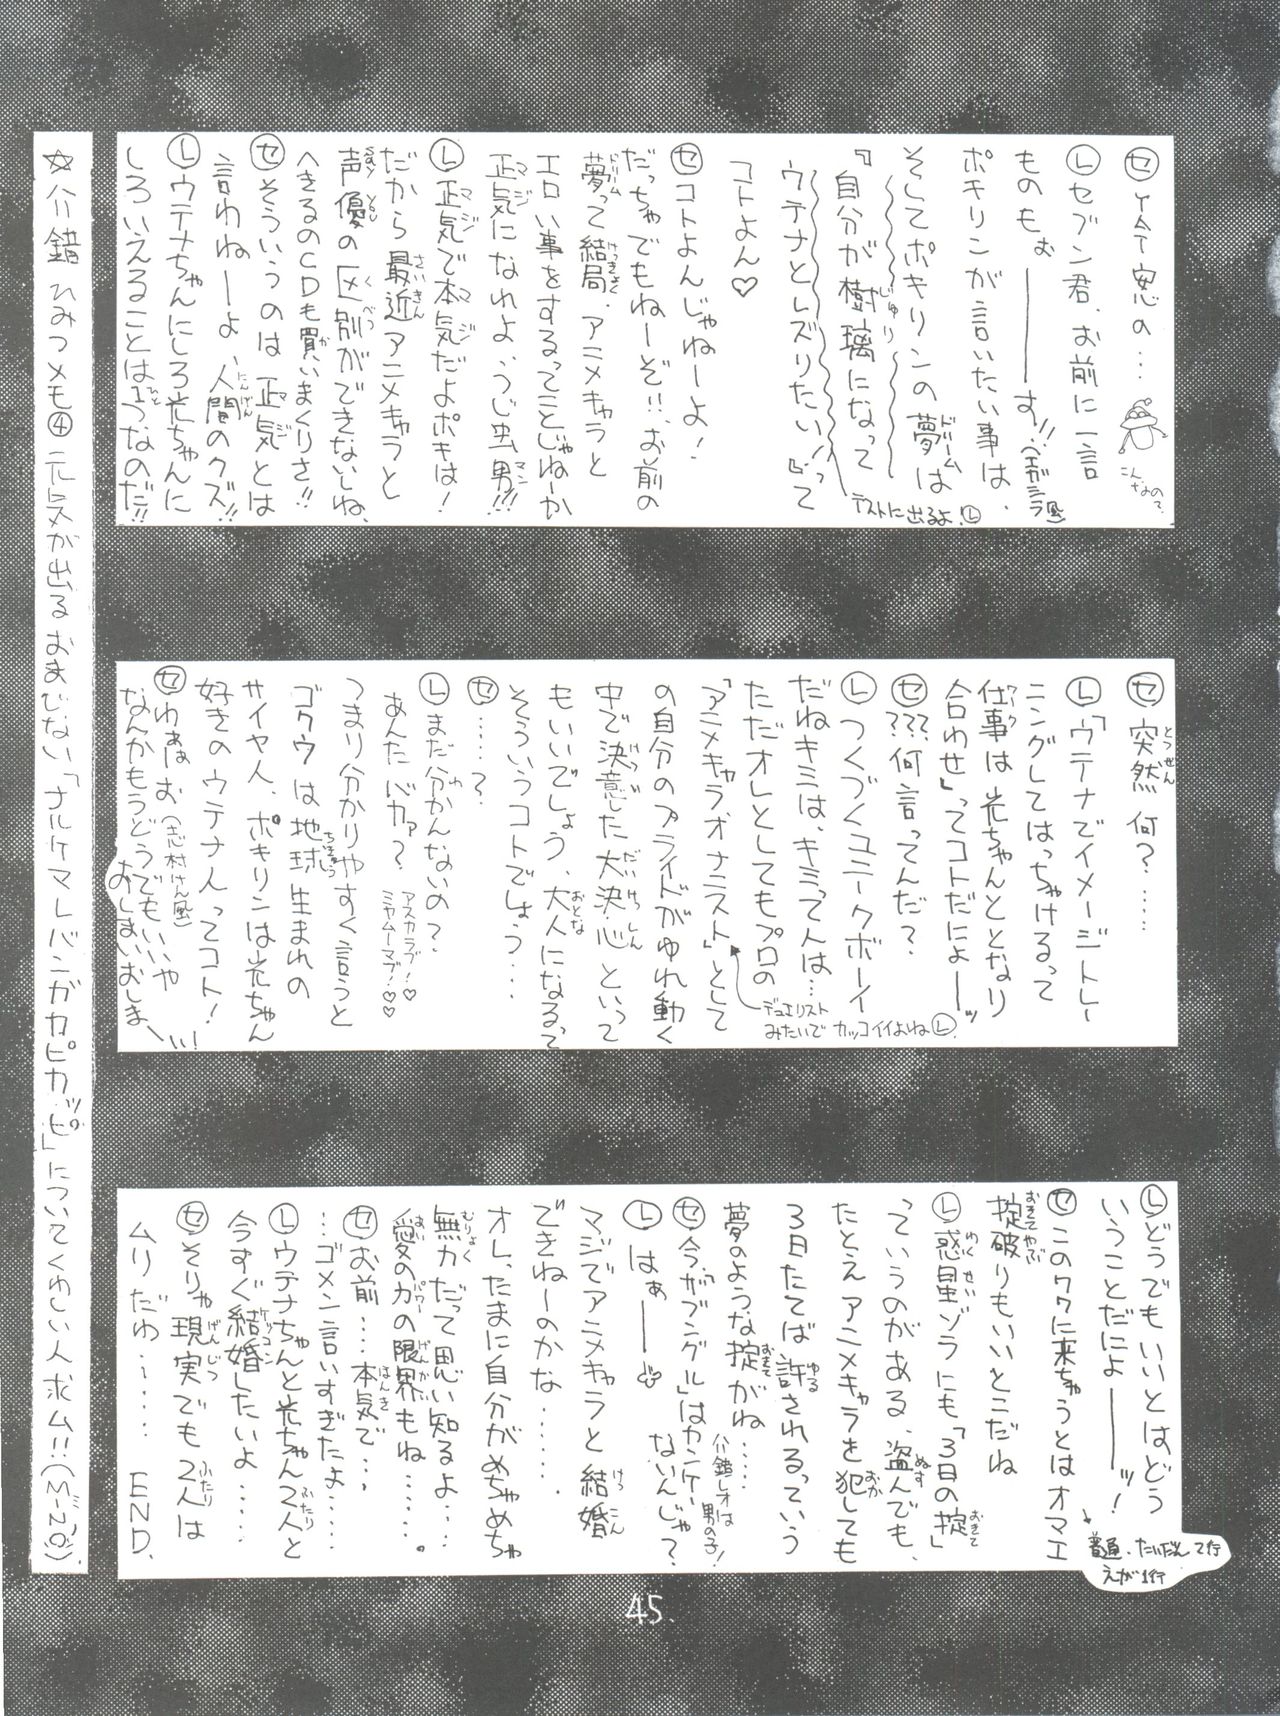 ㋝ 安心の…
こんなので。
Ⓛセブン君、お前に一言
ものもぉーーーす!!(エガシラ風)
ポキリンが言いたい事は、
そしてポキリンの夢は
『自分が樹璃になって
ウテナとレズりたい!』って
コトよん♡
テストに出るよ!Ⓛ
㋝コトよんじゃねーよ!
だっちゃでもねーぞ!!、お前の
夢って結局、アニメキャラと
エロい事をするってことじゃねーか
正気になれよ、うじ虫男!!!
Ⓛ正気で本気だよポキは!
だから最近アニメキャラと
声優の区別ができないしね、
へきるのCDも買いまくりさ!!
㋝そういうのは正気とは
言わねーよ、人間のクズ!!
Ⓛウテナちゃんにしろ光ちゃんに
しろいえることは1つなのだ!!
㋝突然何?……
Ⓛ「ウテナでイメージトレー
ニングしてはっちゃけるって
仕事は光ちゃんととなり
合わせ」ってコトだにょーーッ
㋝???何言ってんだ?
Ⓛつくづくユニークボーイ
だねキミは、キミって人は…
ただオレとしてもプロの
「アニメキャラオナニスト」として
の自分のプライドがゆれ動く
中で決意した大決心といって
もいいでしょう、大人になるって
そういうコトでしょう…
デュエリスト
みたいでカッコイイよねⓁ
㋝……?
Ⓛまだ分かんないの?
あんたバカァ?
アスカラブ!♡
ミヤムーラブ!♡
つまり分かりやすく言うと
ゴクウは地球生まれの
サイヤ人、ポキリンは光ちゃん
好きのウテナ人ってコト!
㋝わぁぉ(志村けん風)
なんかもうどうでもいいや
おしまいおしまーい!
Ⓛどうでもいいとはどう
いうことだにょーーーッ!
㋝このワクに来ちゃうとはオマエ
掟破りもいいとこだね
普通、たいだんて行
えが1行
Ⓛ惑星ゾラにも「3日の掟」
っていうのがある、盗んでも、
たとえアニメキャラを犯しても
3日たてば許されるっていう
夢のような掟がね……
㋝今、「ザブングル」はカンケイ
ないんじゃ?
介錯レオは
男の子!
Ⓛはぁーーー
マジでアニメキャラと結婚
できねーのかな……
オレ、たまに自分がめちゃめちゃ
無力だって思い知るよ……
愛の力の限界もね……。
㋝お前……本気で…
…ゴメン言いすぎたよ…
Ⓛウテナちゃんと光ちゃん2人と
今すぐ結婚したいよ……
㋝そりゃ現実でも2人は
ムリだわ……… END.
☆介錯ひみつメモ④ 元気が出るおまじない「ナルケマレバンガカピカッピ」についてくわしい人求ム!!(M-NO)
45.